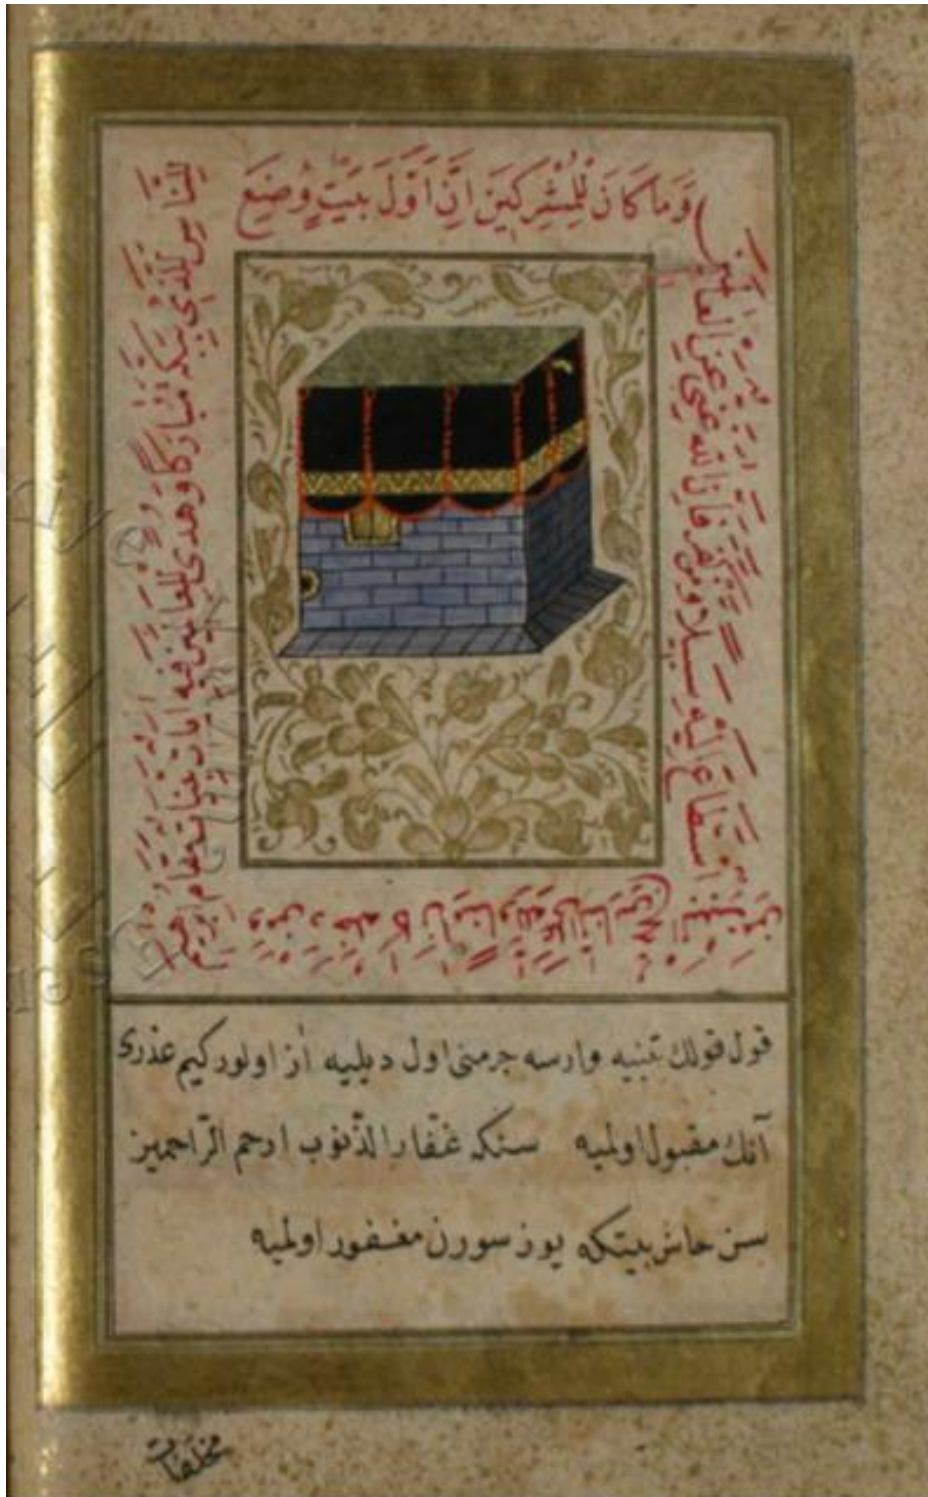 وَمَا كَانَ لْلمُشْرِكِينَ اِنَّ اَوَّلَ بَيْتٍ وُضِعَ
لِلنَّاسِ لَلَّذِي بِبَكَّةَ مُبَارَكًا وَهُدًى لِلْعَالَمِينَ فِيهِ اٰيَاتٌ بَيِّنَاتٌ مَقَامُ اِبْرٰهِيمَ
وَمَنْ دَخَلَهُ كَانَ اٰمِنًا وَلِلّٰهِ عَلَى النَّاسِ حِجُّ الْبَيْتِ مَنِ
اسْتَطَاعَ اِلَيْهِ سَبِيلًا وَمَنْ كَفَرَ فَاِنَّ اللهَ غَنِيٌّ عَنِ الْعَالَمِينَ
قول قولك وارسه جرمنى اول ديليه از اولور كيم عذرى
آنك مقبول اولميه سنكه غفّار الذّنوب ارحم الرّاحمين
سن حاش بيتكه يوز سورن مغفور اولميه
مخلفات